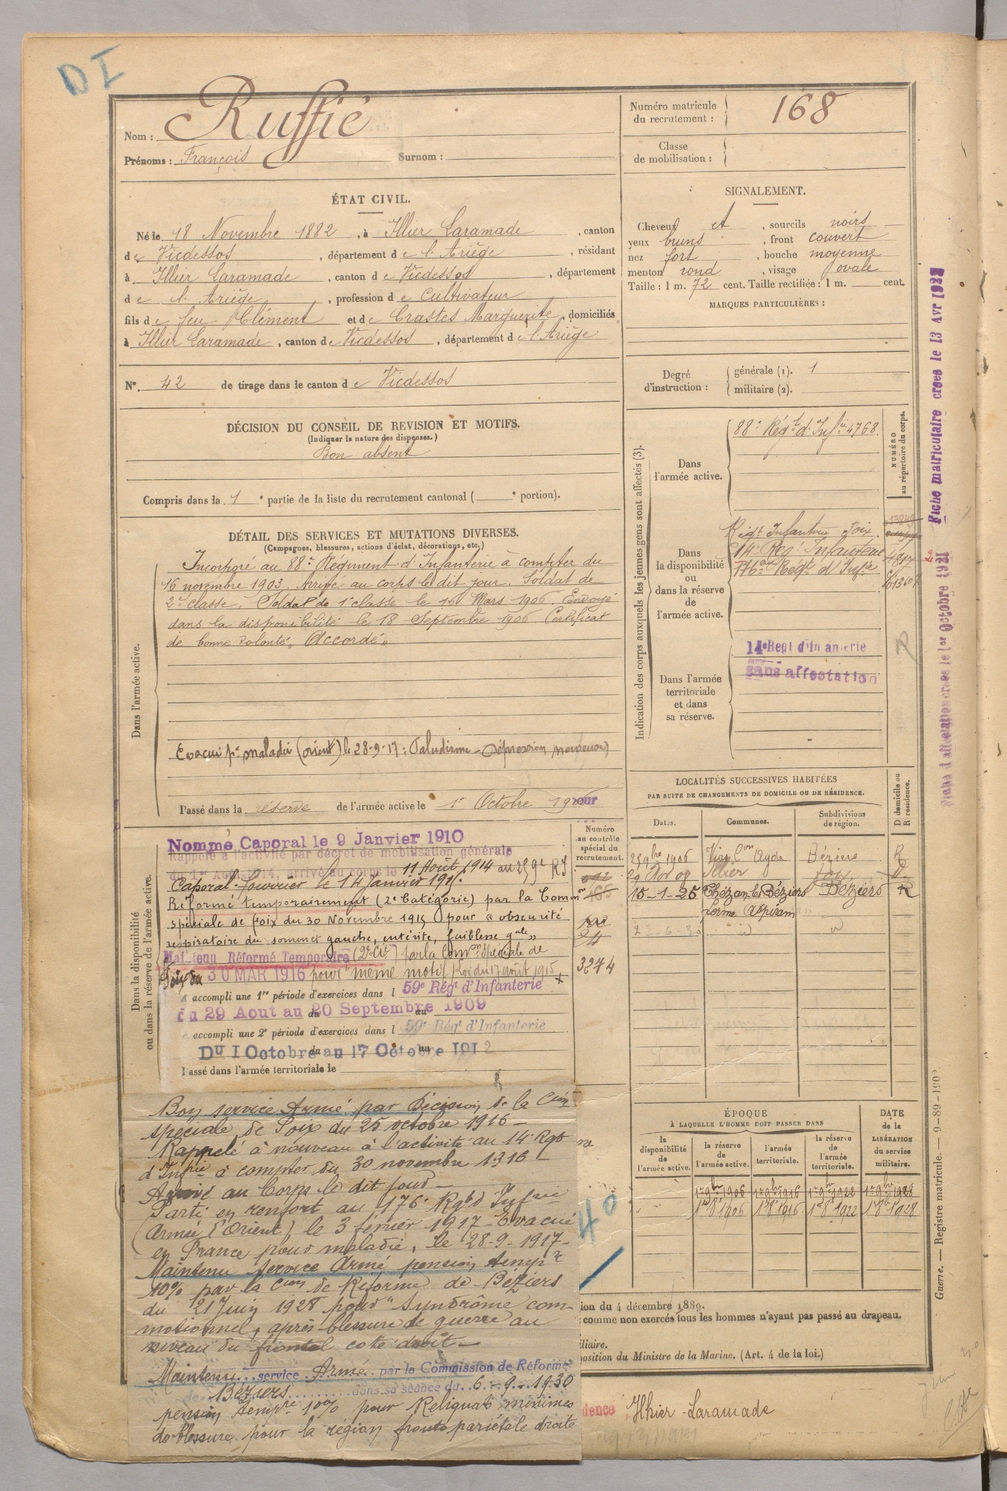 DI
Nom : Ruffié
Prénoms : François Surnom :
Numéro matricule du recrutement : 168
Classe de mobilisation :
ÉTAT CIVIL.
Né le 18 Novembre 1882, à Illier Laramade, canton
de Vicdessos, département de l'Ariège, résidant
à Illier Laramade, canton de Vicdessos, département
de l'Ariège, profession de Cultivateur
fils de feu Clément et de Crastes Marguerite, domiciliés
à Illier Laramade, canton de Vicdessos, département de l'Ariège
N°. 42 de tirage dans le canton de Vicdessos
SIGNALEMENT.
Cheveux et, sourcils noirs
yeux bruns, front couvert
nez fort, bouche moyenne
menton rond, visage ovale
Taille : 1 m. 72 cent. Taille rectifiée : 1 m. cent.
MARQUES PARTICULIÈRES :
Degré d'instruction : générale (1). 1
militaire (2).
DÉCISION DU CONSEIL DE REVISION ET MOTIFS.
(Indiquer la nature des dispenses.)
Bon absent
Compris dans la 1e partie de la liste du recrutement cantonal ( e portion).
DÉTAIL DES SERVICES ET MUTATIONS DIVERSES.
(Campagnes, blessures, actions d'éclat, décorations, etc.)
Dans l'armée active.
Incorporé au 88e Régiment d'Infanterie à compter du
16 novembre 1903. Arrivé au corps le dit jour. Soldat de
2e classe. Soldat de 1e classe le 1er Mars 1906 Envoyé
dans la disponibilité le 18 Septembre 1906 Certificat
de bonne volonté, Accordé.
Evacué pr maladie (orient) le 28-9-17 : Paludisme - Dépression
Passé dans la réserve de l'armée active le 1er Octobre
Dans la disponibilité ou dans la réserve de l'armée active.
Nommé Caporal le 9 Janvier 1910
Rappelé à l'activité par décret de mobilisation générale
du 1er Août 1914, arrivé au corps le 11 Août 1914 au
Caporal Fourrier le 14 Janvier
Réformé temporairement (2e Catégorie) par la Comm
spéciale de Foix du 30 Novembre 1915 pour « obscurité
respiratoire du sommet gauche, entérite, faiblesse gale »
Maintenu Réformé Temporaire (2e Cie) par la Comon Spéciale de
Foix du 30 MAR 1916 pour même motif loi du 17 août 1915
a accompli une 1re période d'exercices dans l 59e Régt d'Infanterie
du 29 Aout au 20 Septembre 1909
a accompli une 2e période d'exercices dans l 59e Régt d'Infanterie
Du 1 Octobre au 17 Octobre 1912
Passé dans l'armée territoriale le
Numéro au contrôle spécial du recrutement.
3274
Bon service Armé par Décision de la Cion
spéciale de Foix du 25 octobre 1916 -
Rappelé à nouveau à l'activité au 14e Rgt
d'Infrie à compter du 30 novembre 1916
Arrivé au Corps le dit jour -
Parti en renfort au 176e Rgt d'Infrie
(Armée d'Orient) le 3 février 1917 - Evacué
en France pour maladie, le 28-9-1917-
Maintenu service Armé pension tempre
10% par la Cion de Réforme de Béziers
du 21 Juin 1928 pour "Syndrôme com-
motionnel, après blessure de guerre au
niveau du frontal coté droit -
Maintenu service Armé par la Commission de Réforme
de Béziers dans sa séance du 6-9-1930
pension tempre 10% pour Reliquat minimes
de blessure pour la région fronto pariétale droite
Indication des corps auxquels les jeunes gens sont affectés (3).
NUMÉRO au répertoire du corps.
Dans l'armée active.
88e Régt d'Infie 4768.
Dans la disponibilité ou dans la réserve de l'armée active.
Régt Infanterie Foix.
14e Régt Infanterie
176e Régt d'Infie
Dans l'armée territoriale et dans sa réserve.
14e Regt d'Infanterie
sans affectation
LOCALITÉS SUCCESSIVES HABITÉES
PAR SUITE DE CHANGEMENTS DE DOMICILE OU DE RÉSIDENCE.
Dates. Communes. Subdivisions de région. D domicile ou R résidence.
Béziers R
Illier Foix
15-1-25 Béziers R
ÉPOQUE
À LAQUELLE L'HOMME DOIT PASSER DANS
DATE de la LIBÉRATION du service militaire.
la disponibilité de l'armée active. la réserve de l'armée active. l'armée territoriale. la réserve de l'armée territoriale.
1er 8bre 1906 1er 8bre 1916 1er 8bre 1922 1er 8bre 1928
40
ion du 4 décembre 1889.
comme non exercés tous les hommes n'ayant pas passé au drapeau.
iliaire.
position du Ministre de la Marine. (Art. 4 de la loi.)
dence Illier-Laramade
Guerre. — Registre matricule. — 9-89-1902
Fiche matriculaire creee le 13 Avr
Fiche d'affectation creee le 1er Octobre 1931